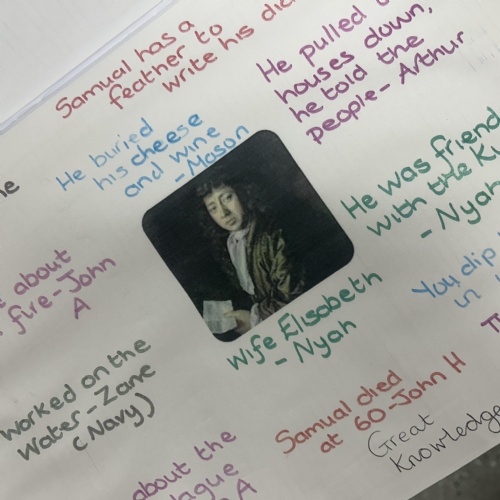 Samual has a
feather to
write his
He pulled
houses down,
he told the
people - Arthur
He buried
his cheese
and wine
- Mason
He was friend
with the
- Nyah
about
fire - John
A
You dip
in
Wife Elisabeth
- Nyah
Worked on the
Water - Zane
(Navy)
Samual died
at 60 - John H
Great
Knowledge
about the
A